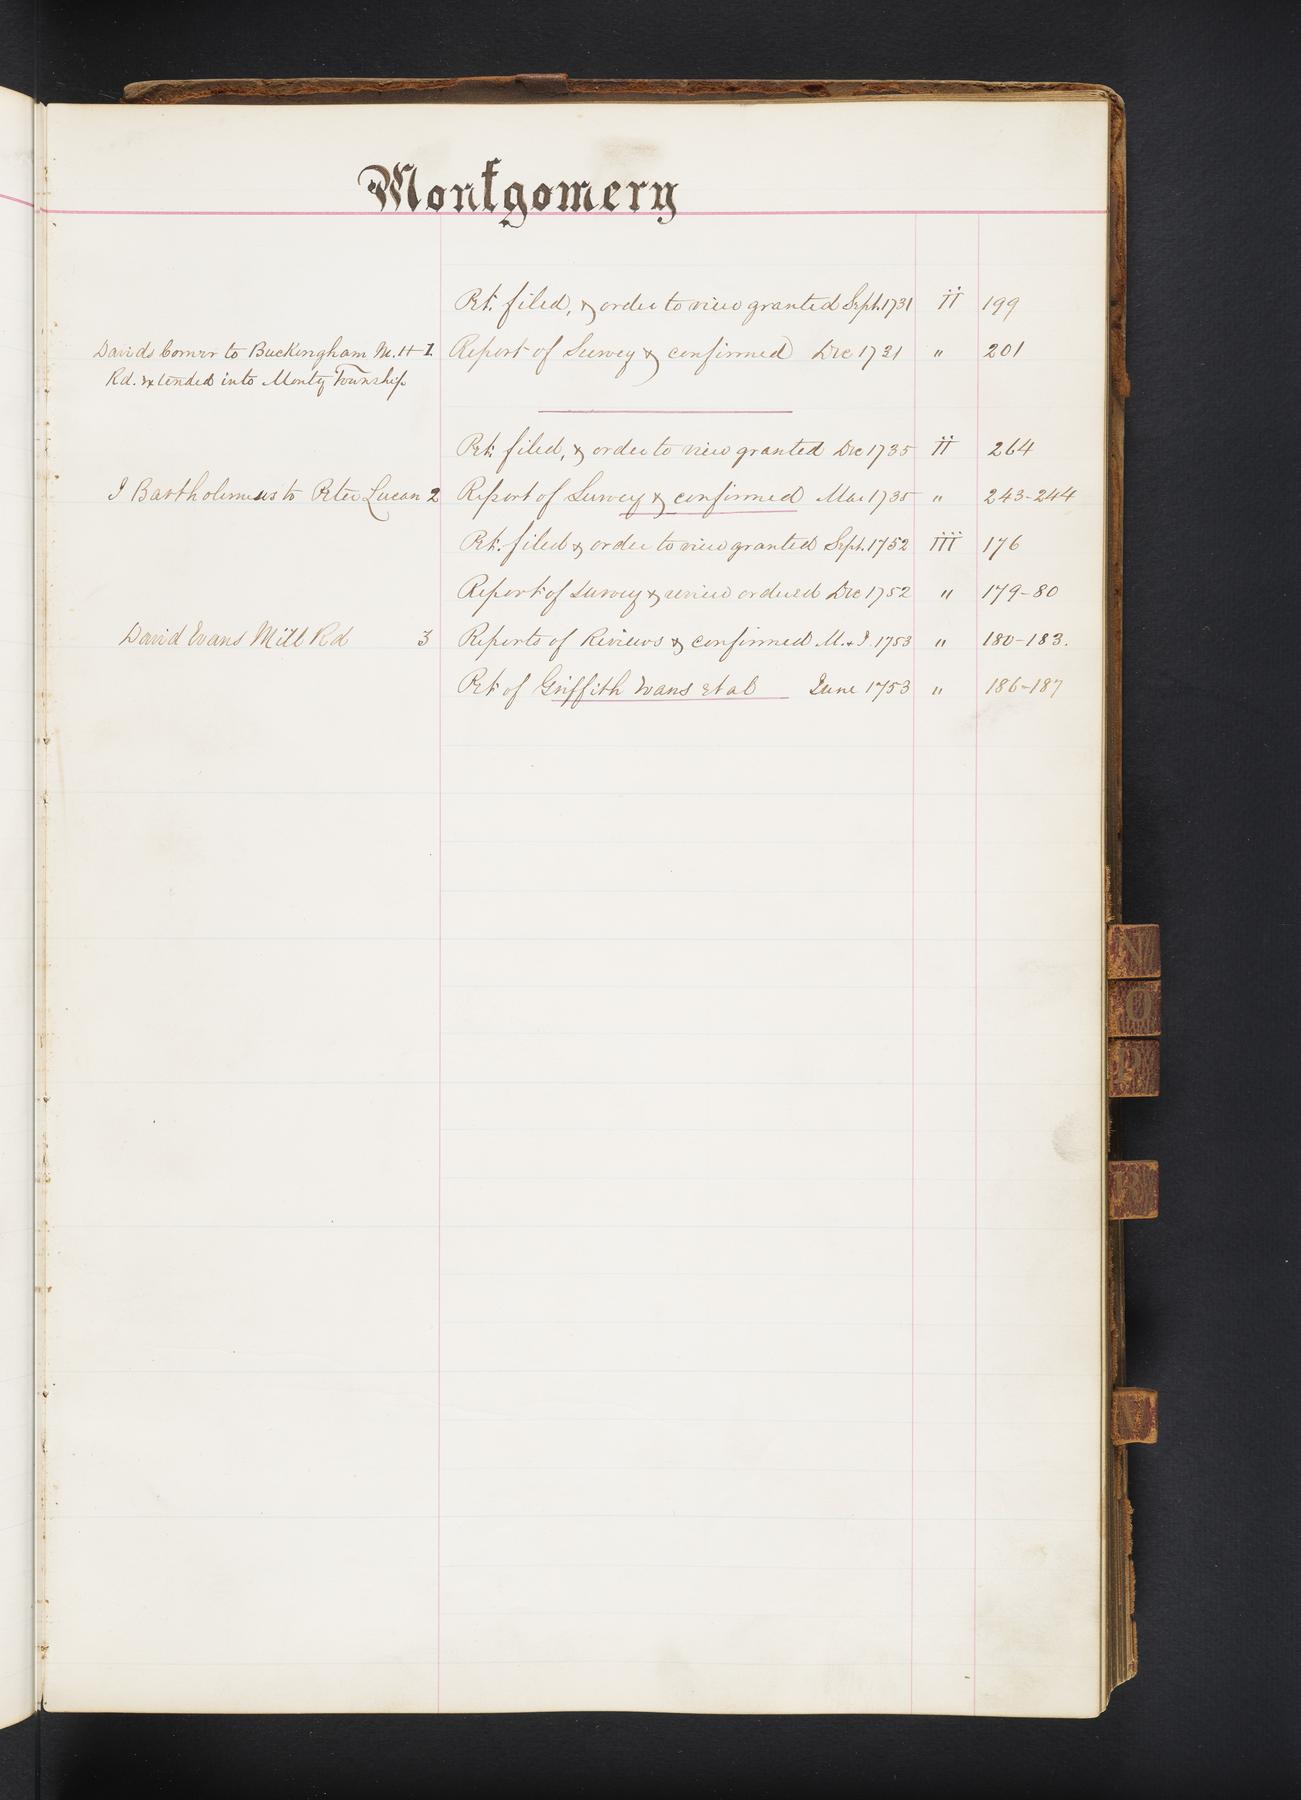 Montgomery
Pet. filed, & order to view granted Sept. 1731 II 199
Davids Corner to Buckingham M. H 1 Report of Survey & confirmed Dec 1731 " 201
Rd. extended into Montg Township
Pet. filed, & order to view granted Dec 1735 II 264
J Bartholemeus to Peter Lucan 2 Report of Survey & confirmed Mar 1735 " 243-244
Pet. filed & order to view granted Sept. 1752 III 176
Report of Survey & review ordered Dec 1752 " 179-80
David Evans Mill Rd 3 Reports of Reviews & confirmed M. & J. 1753 " 180-183.
Pet of Griffith Evans et al June 1753 " 186-187
N
O
P
R
V